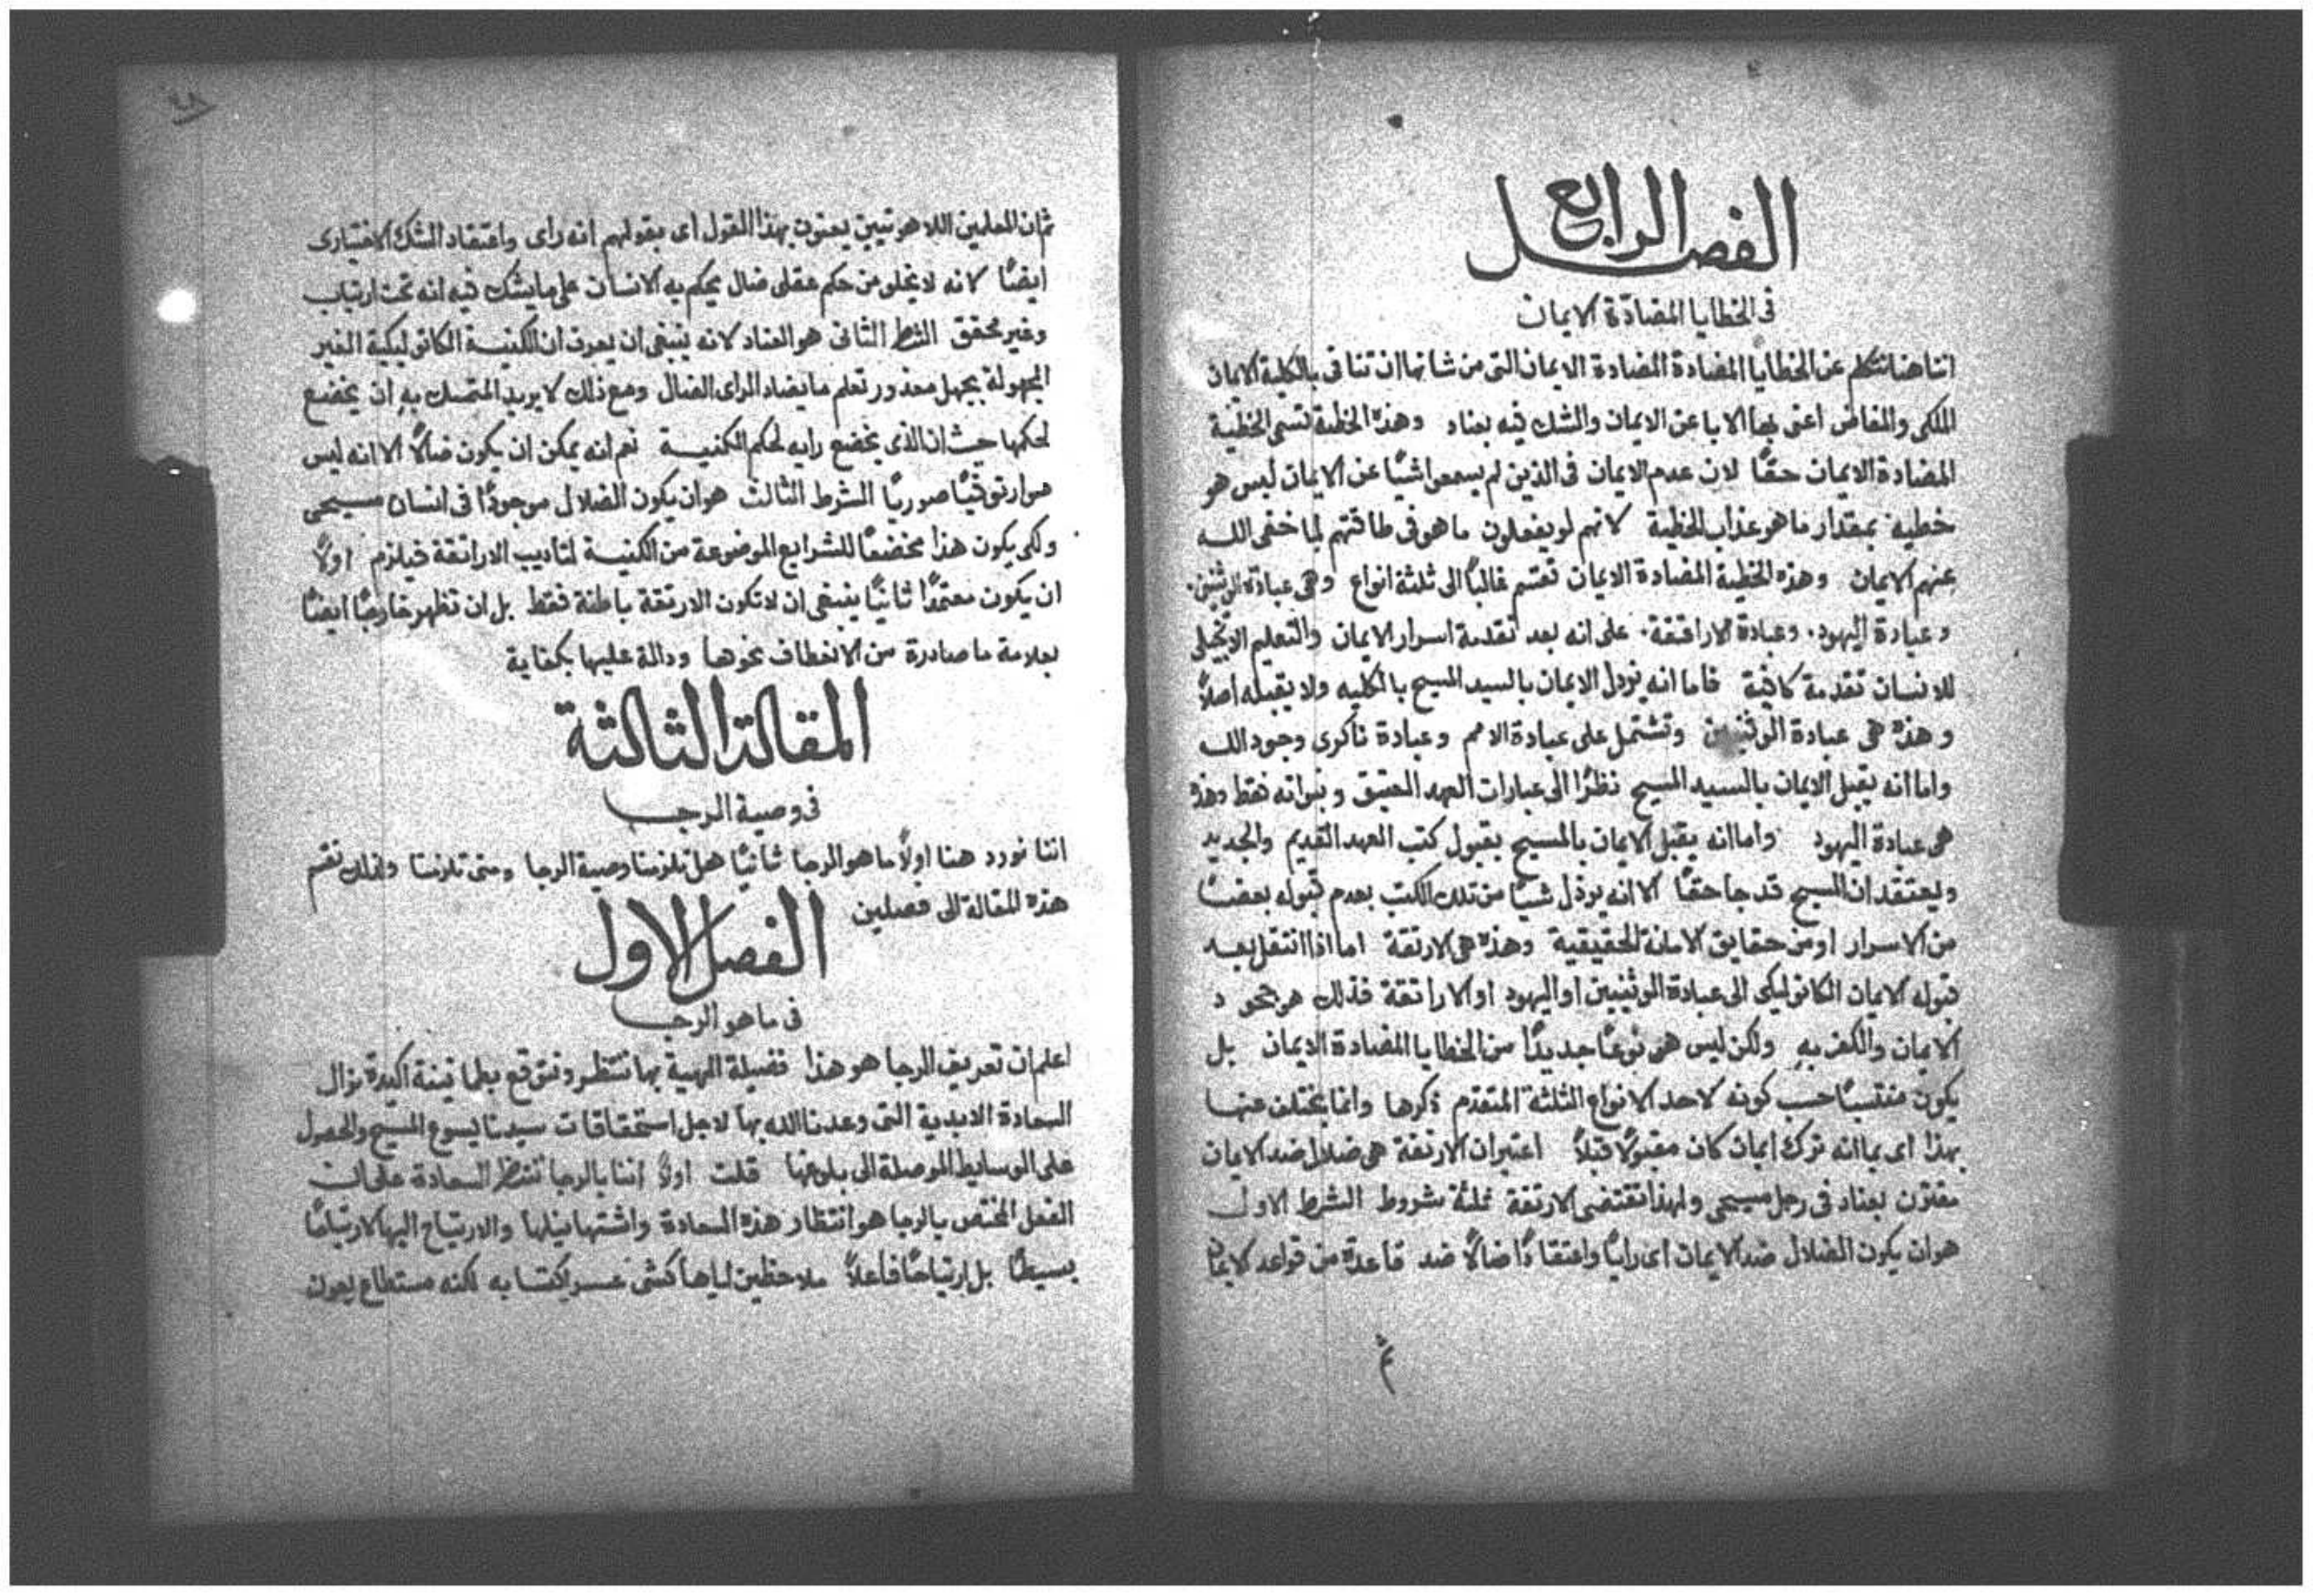 الفصل الرابع
في الخطايا المضادّة الايمان
اننا هنا نتكلم عن الخطايا المضادة المضادة الايمان التي من شانها ان تنافي بالكلية الايمان
الملكي والمفاض اعني بها الابا عن الايمان والشك فيه بعناد وهذه الخطية تسمى الخطية
المضادة الايمان حقًا لان عدم الايمان في الذين لم يسمعوا شيًا عن الايمان ليس هو
خطيه بمقدار ما هو عذاب الخطية لانهم لو يفعلون ما هو في طاقتهم لما خفى الله
عنهم الايمان وهذه الخطية المضادة الايمان تقسم غالبًا الى ثلثة انواع وهي عبادة الوثنين.
وعبادة اليهود. وعبادة الاراتقة. على انه بعد تقدمة اسرار الايمان والتعليم الانجيلي
للانسان تقدمة كافية فاما انه يرذل الايمان بالسيد المسيح بالكليه ولا يقبله اصلاً
وهذه هي عبادة الوثنيين وتشتمل على عبادة الامم وعبادة ناكرى وجود الله
واما انه يقبل الايمان بالسيد المسيح نظرًا الى عبارات العهد العتيق ونبواته فقط وهذه
هي عبادة اليهود واما انه يقبل الايمان بالمسيح بقبول كتب العهد القديم والجديد
ويعتقد ان المسيح قد جا حقًا الا انه يرذل شيًا من تلك الكتب بعدم قبوله بعضًا
من الاسرار او من حقايق الامانة الحقيقية وهذه هي الارتقة اما اذا انتقل بعد
قبوله الايمان الكاتوليكى الى عبادة الوثنيين او اليهود او الاراتقة فذلك هو جحود
الايمان والكفر به ولكن ليس هو نوعًا جديدًا من الخطايا المضادة الايمان بل
يكون منقسمًا حسب كونه لاحد الانواع الثلثة المتقدم ذكرها وانما يختلف عنها
بهذا اى بما انه ترك ايمان كان مقبولاً قبلاً اعتبر ان الارتقة هي ضلال ضد الايمان
مقترن بعناد في رجل مسيحي ولهذا تقتضى الارتقة ثلثة شروط الشرط الاول
هو ان يكون الضلال ضد الايمان اى رايًا واعتقادًا ضالاً ضد قاعدة من قواعد الايمان
ثم
ثم ان المعلمين اللاهوتيين يعنون بهذا القول اى بقولهم انه راى واعتقاد الشك الاختيارى
ايضًا لانه لا يخلو من حكم عقلى ضال يحكم به الانسان على ما يشك فيه انه تحت ارتياب
وغير محقق الشرط الثاني هو العناد لانه ينبغي ان يعرف ان الكنيسة الكاتوليكية الغير
المجهولة بجهل معذور تعلم ما يضاد الراى الضال ومع ذلك لا يريد المتمسك به ان يخضع
لحكمها حيث ان الذى يخضع رايه لحكم الكنيسة نعم انه يمكن ان يكون ضالاً الا انه ليس
هو ارتوقيًا صوريًا الشرط الثالث هو ان يكون الضلال موجودًا في انسان مسيحي
ولكي يكون هذا مخضعًا للشرايع الموضوعة من الكنيسة لتاديب الاراتقة فيلزم اولاً
ان يكون معتمدًا ثانيًا ينبغي ان لا تكون الارتقة باطنة فقط بل ان تظهر خارجًا ايضًا
بعلامة ما صادرة من الانعطاف نحوها ودالة عليها بكفاية
المقالة الثالثة
في وصية الرجا
اننا نورد هنا اولاً ما هو الرجا ثانيًا هل تلزمنا وصية الرجا ومتى تلزمنا ولذلك نقسم
هذه المقالة الى فصلين
الفصل الاول
في ما هو الرجا
اعلم ان تعريف الرجا هو هذا فضيلة الهية بها ننتظر ونتوقع بطمانينة اكيدة نوال
السعادة الابدية التي وعدنا الله بها لاجل استحقاقات سيدنا يسوع المسيح والحصول
على الوسايط الموصلة الى بلوغها قلت اولاً اننا بالرجا ننتظر السعادة على ان
الفعل المختص بالرجا هو انتظار هذه السعادة واشتها نيلها والارتياح اليها لا ارتياحًا
بسيطًا بل ارتياحًا فاعلاً ملاحظين اياها كشى عسر اكتسابه لكنه مستطاع بعون